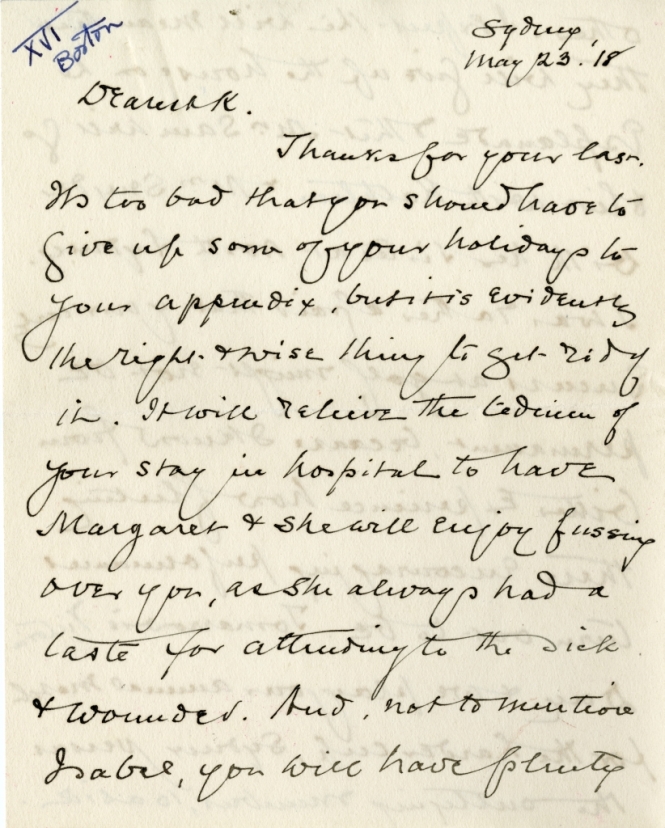 XVI
Boston
Sydney,
May 23. 18
Dearest K.
Thanks for your last.
Its too bad that you should have to
give up some of your holidays to
your appendix, but it is evidently
the right & wise thing to get rid of
it. It will relieve the tedium of
your stay in hospital to have
Margaret & she will enjoy fussing
over you, as she always had a
taste for attending to the sick
& wounded. And, not to mention
Isabel, you will have plenty